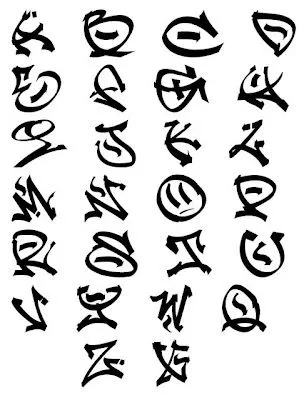 A B C D
E F G H
I J K L
M N O P
R S T U
V Y W Q
Z X